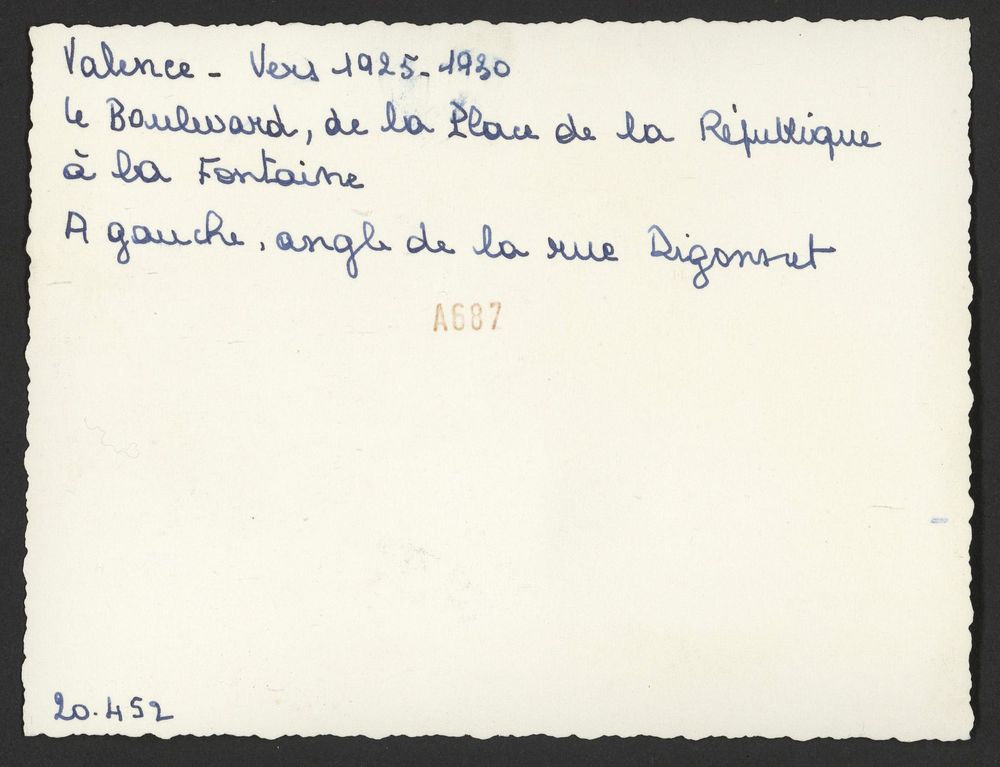 Valence - Vers 1925-1930
le Boulevard, de la Place de la République
à la Fontaine
A gauche, angle de la rue Digonnet
A687
20.452